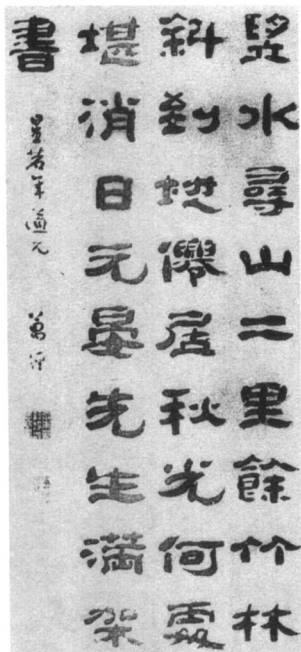 水尋山二里餘竹林
斜到地僊居秋光何處
堪消日元晏先生滿架
書
若年道兄 萬經